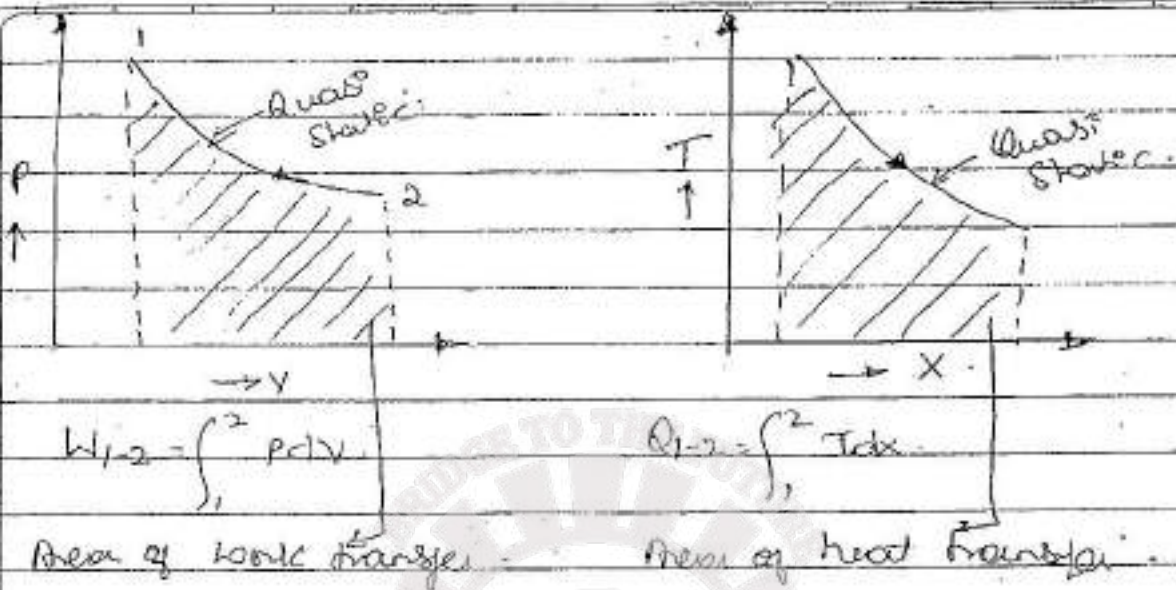 1
Quasi
Static
P
↑
2
→ V
W1-2 = ∫₁² PdV.
Area of work transfer.
1
Quasi
Static.
T
↑
→ X.
Q1-2 = ∫₁² Tdx.
Area of heat transfer.
BRIDGE TO THE FUTURE